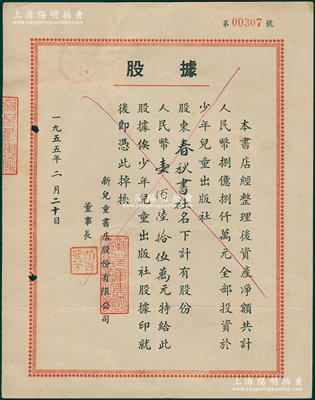 上海陽明拍賣
www.yangmingauction.com
第 00307 號
股據
本書店經整理後資產淨額共計
人民幣捌億捌仟萬元全部投資於
少年兒童出版社
股東春秋書社名下計有股份
人民幣壹佰陸拾伍萬元特給此
股據俟少年兒童出版社股據印就
後即憑此掉換
新兒童書店股份有限公司
董事長
一九五五年二月二十日